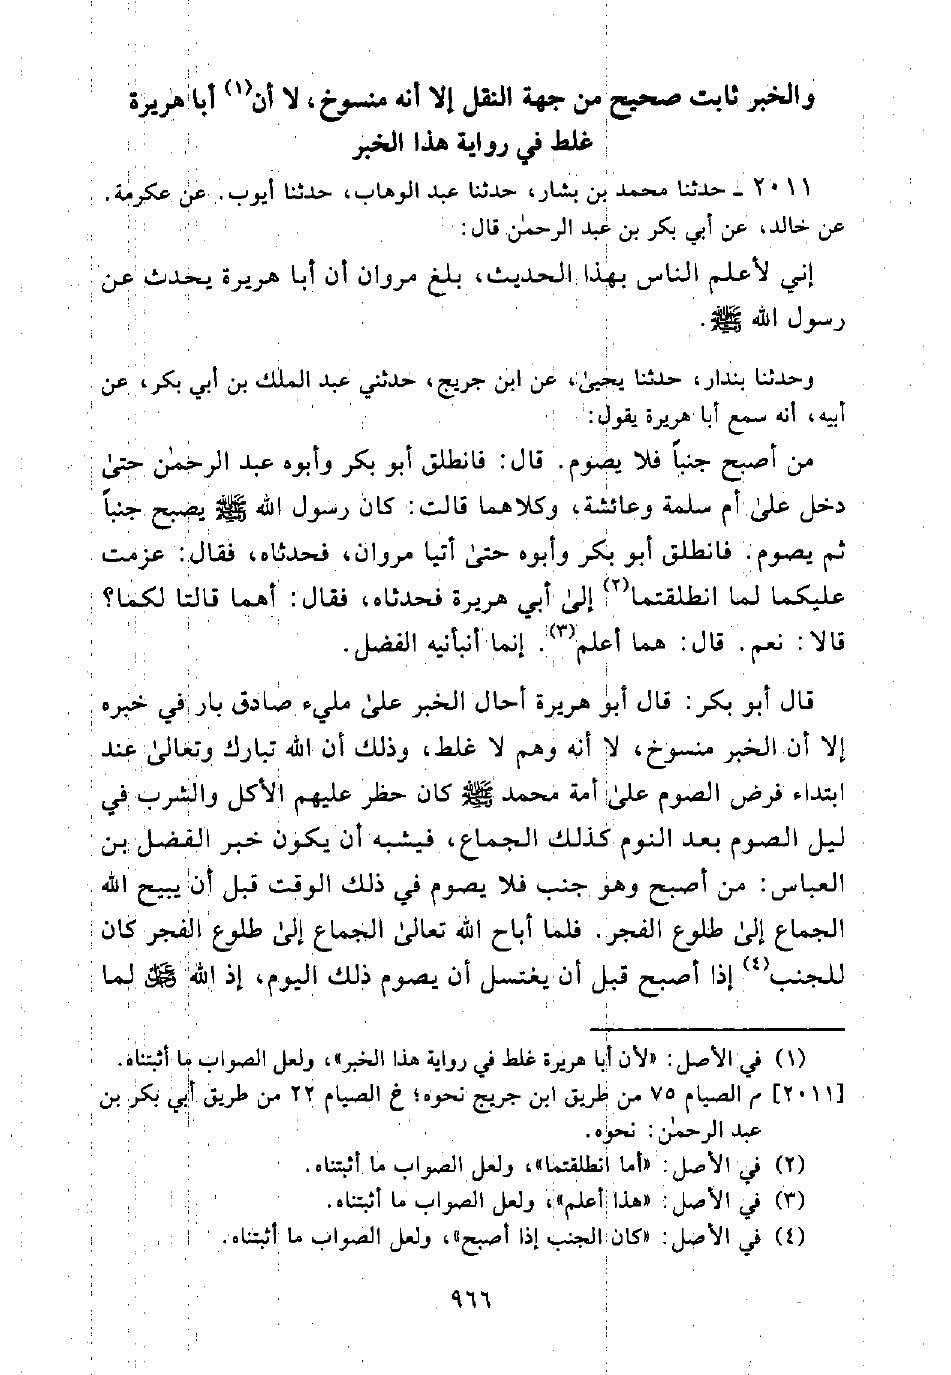 والخبر ثابت صحيح من جهة النقل إلا أنه منسوخ، لا أن(١) أبا هريرة
غلط في رواية هذا الخبر
٢٠١١ - حدثنا محمد بن بشار، حدثنا عبد الوهاب، حدثنا أيوب. عن عكرمة.
عن خالد، عن أبي بكر بن عبد الرحمٰن قال:
إني لأعلم الناس بهذا الحديث، بلغ مروان أن أبا هريرة يحدث عن
رسول الله ﷺ.
وحدثنا بندار، حدثنا يحيىٰ، عن ابن جريج، حدثني عبد الملك بن أبي بكر، عن
أبيه، أنه سمع أبا هريرة يقول:
من أصبح جنباً فلا يصوم. قال: فانطلق أبو بكر وأبوه عبد الرحمٰن حتىٰ
دخل علىٰ أم سلمة وعائشة، وكلاهما قالت: كان رسول الله ﷺ يصبح جنباً
ثم يصوم. فانطلق أبو بكر وأبوه حتىٰ أتيا مروان، فحدثاه، فقال: عزمت
عليكما لما انطلقتما(٢) إلىٰ أبي هريرة فحدثاه، فقال: أهما قالتا لكما؟
قالا: نعم. قال: هما أعلم(٣). إنما أنبأنيه الفضل.
قال أبو بكر: قال أبو هريرة أحال الخبر علىٰ مليء صادق بار في خبره
إلا أن الخبر منسوخ، لا أنه وهم لا غلط، وذلك أن الله تبارك وتعالىٰ عند
ابتداء فرض الصوم علىٰ أمة محمد ﷺ كان حظر عليهم الأكل والشرب في
ليل الصوم بعد النوم كذلك الجماع، فيشبه أن يكون خبر الفضل بن
العباس: من أصبح وهو جنب فلا يصوم في ذلك الوقت قبل أن يبيح الله
الجماع إلىٰ طلوع الفجر. فلما أباح الله تعالىٰ الجماع إلىٰ طلوع الفجر كان
للجنب(٤) إذا أصبح قبل أن يغتسل أن يصوم ذلك اليوم، إذ الله ﷻ لما
(١) في الأصل: «لأن أبا هريرة غلط في رواية هذا الخبر»، ولعل الصواب ما أثبتناه.
[٢٠١١] م الصيام ٧٥ من طريق ابن جريج نحوه؛ خ الصيام ٢٢ من طريق أبي بكر بن
عبد الرحمٰن: نحوه.
(٢) في الأصل: «أما انطلقتما»، ولعل الصواب ما أثبتناه.
(٣) في الأصل: «هذا أعلم»، ولعل الصواب ما أثبتناه.
(٤) في الأصل: «كان الجنب إذا أصبح»، ولعل الصواب ما أثبتناه.
٩٦٦